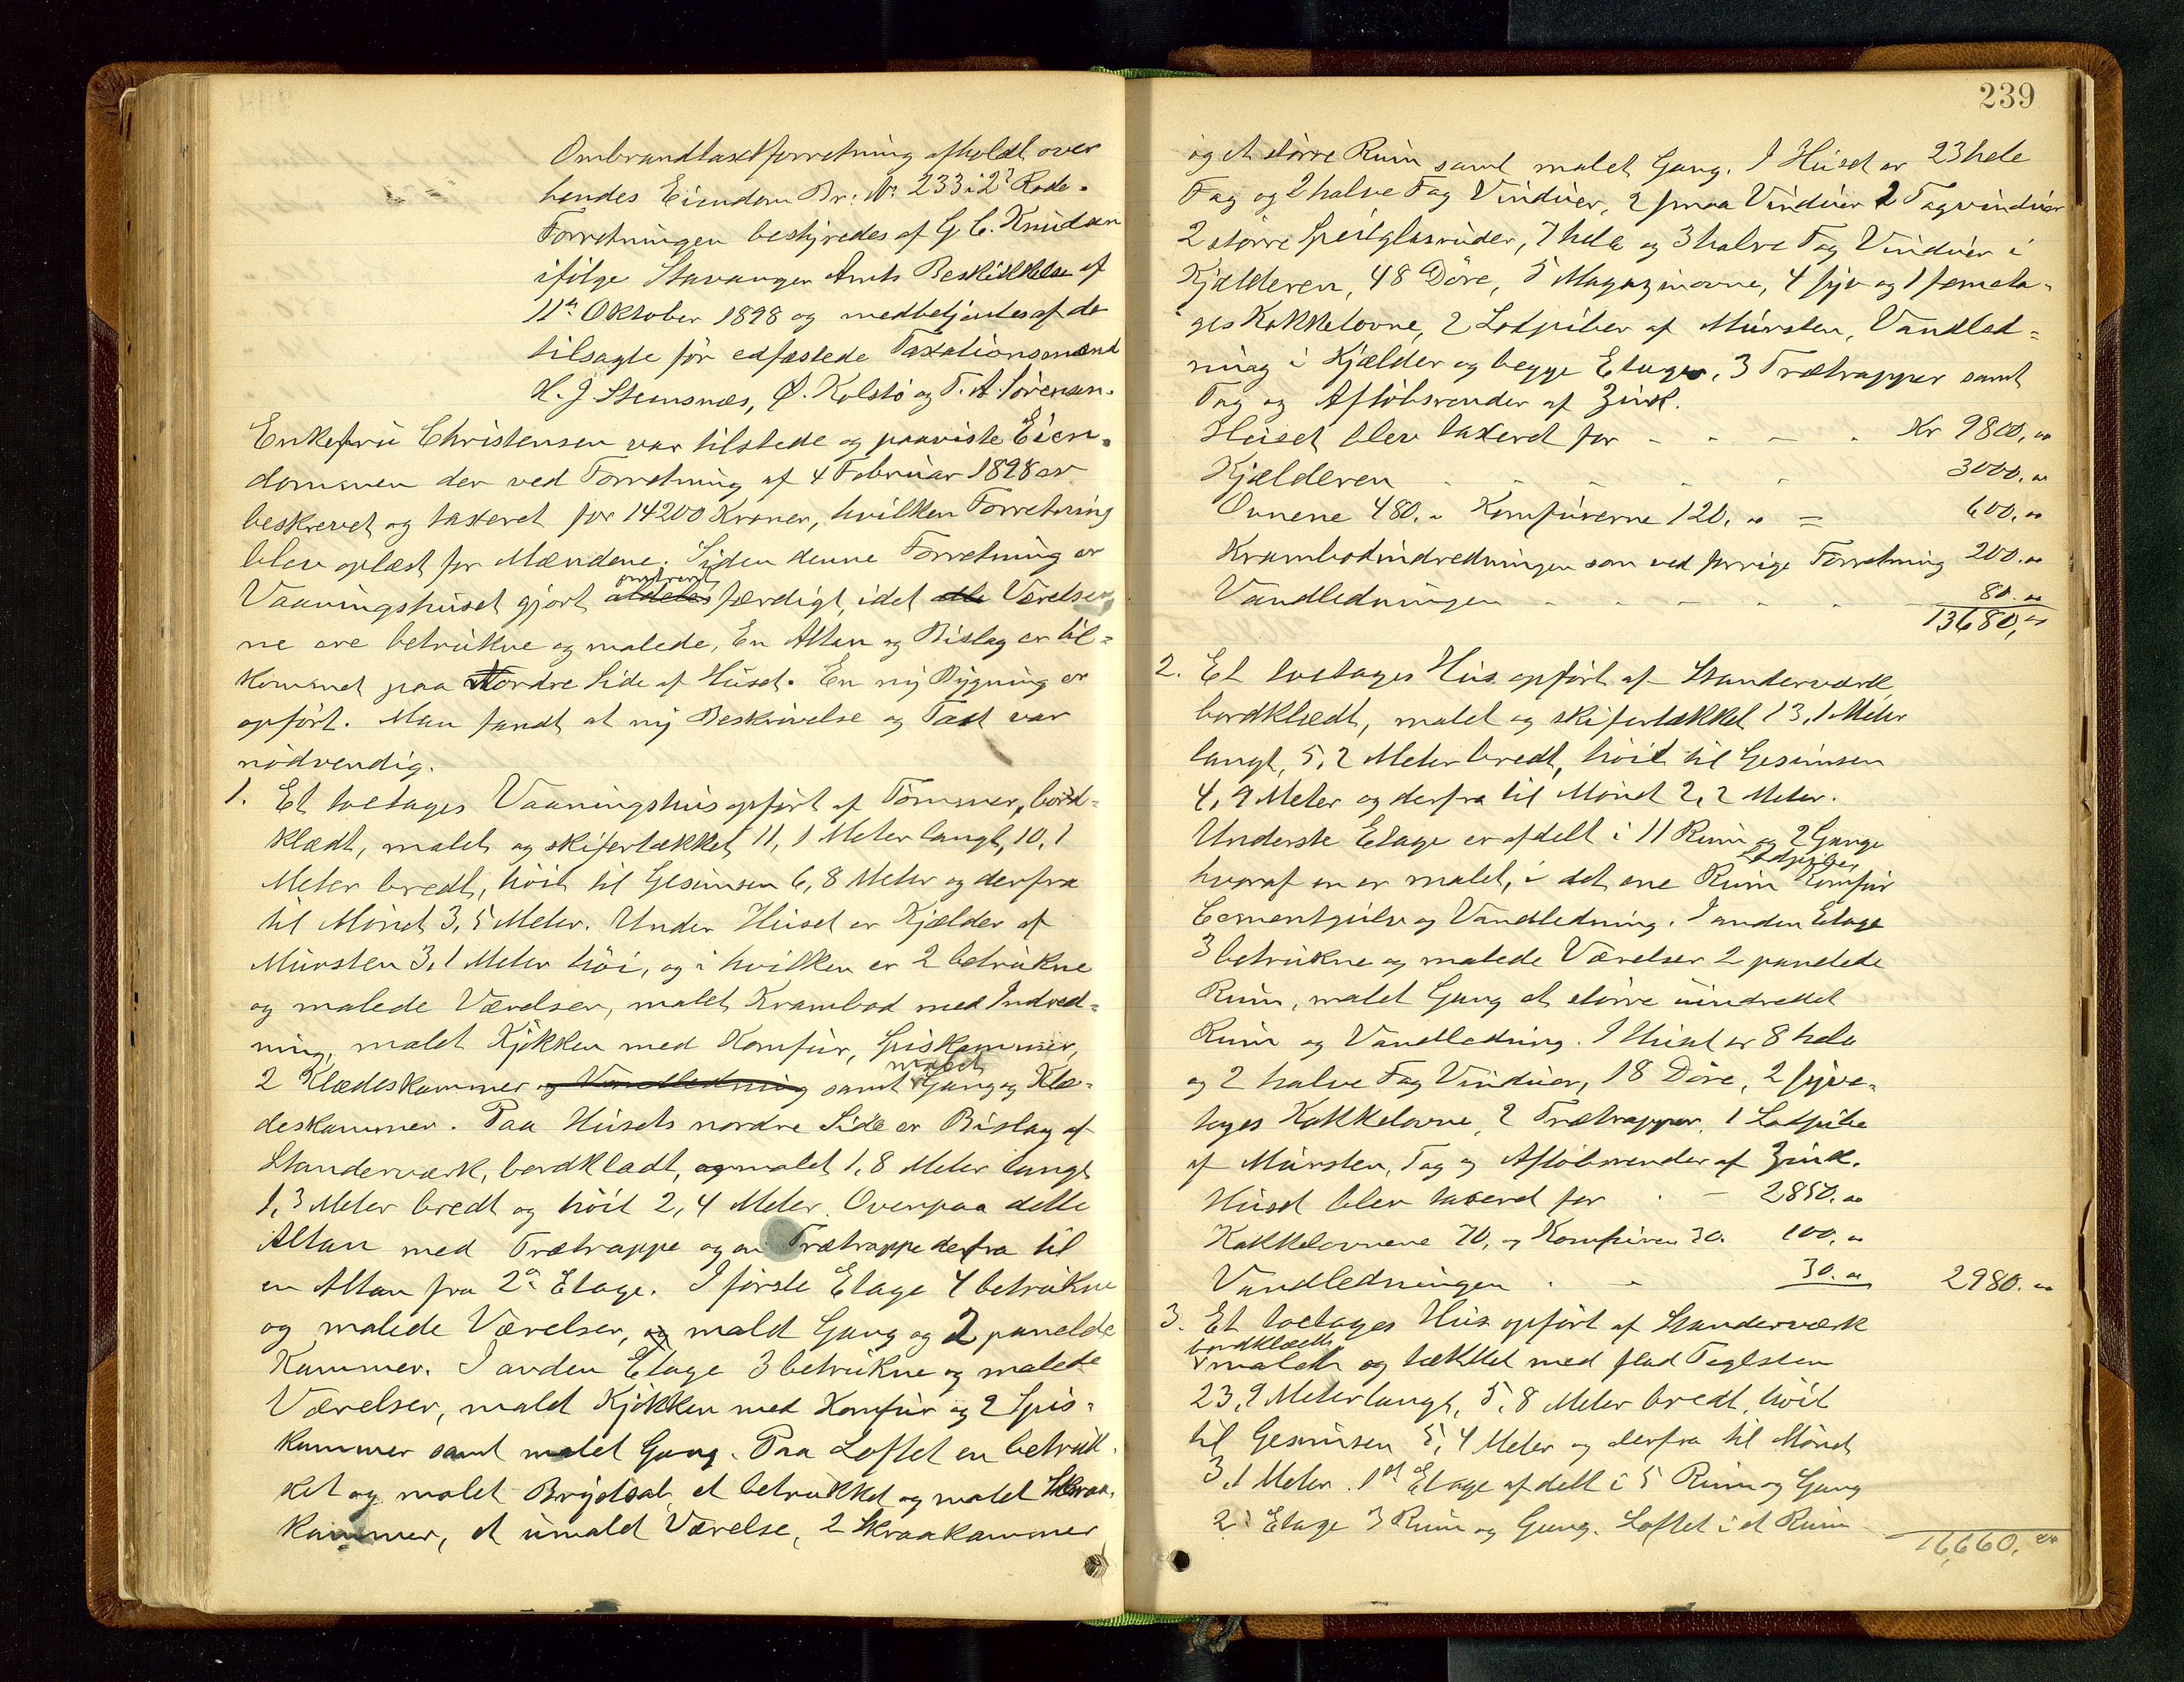 Ombrandtaxtforretning afholdt over
hendes Eiendom Br: No 233 i 2d Rode.
Forretningen bestyredes af G. C. Knudsen
ifølge Stavanger Amts Beskikkelse af
11te Oktober 1898 og medbetjentes af de
tilsagte før edfæstede Taxationsmænd
H. J. Stensnæs, Ø. Kolstø og T. A. Sørensen.
Enkefru Christensen var tilstede og paaviste Eien-
dommen der ved Forretning af 4 Februar 1898 er
beskrevet og taxeret for 14200 Kroner, hvilken Forretning
blev oplæst for Mændene. Siden denne Forretning er
Vaaningshuset gjort omtrent færdigt, idet Værelser
ne ere betrukne og malede, En Altan og Bislag er til-
kommet paa Nordre Side af Huset. En ny Bygning er
opført. Man fandt at ny Beskrivelse og Taxt var
nødvendig.
1. Et toetages Vaaningshus opført af Tømmer, bord-
klædt, malet og skifertækket 11,1 Meter langt, 10,1
Meter bredt, høit til Gesimsen 6,8 Meter og derfra
til Mønet 3,5 Meter. Under Huset er Kjælder af
Mursten 3,1 Meter høi, og i hvilken er 2 betrukne
og malede Værelser, malet Krambod med Indred-
ning, malet Kjøkken med Komfur, Spiskammer,
2 Klædeskammer og Vandledning samt malet Gang og Klæ-
deskammer. Paa Husets nordre Side er Bislag af
Standerværk, bordklædt, og malet 1,8 Meter langt
1,3 Meter bredt og høit 2,4 Meter. Ovenpaa dette
Altan med Trætrappe og en Trætrappe derfra til
en Altan fra 2den Etage. I første Etage 4 betrukne
og malede Værelser, og malet Gang og 2 panelede
Kammer. I anden Etage 3 betrukne og malede
Værelser, malet Kjøkken med Komfur og 2 Spis-
kammer samt malet Gang. Paa Loftet en betruk-
ket og malet Brydsal, et betrukket og malet Skraa-
kammer, et umalet Værelse, 2 Skraakammer
239
og et større Rum samt malet Gang. I Huset er 23 hele
Fag og 2 halve Fag Vinduer, 2 smaa Vinduer 2 Tagvinduer
2 større Speilglasruder, 7 hele og 3 halve Fag Vinduer i
Kjælderen, 48 Døre, 5 Magazinovne, 4 fyr og 1 femeta-
ges Kakkelovne, 2 Lodpiber af Mursten, Vandled-
ning i Kjælder og begge Etager, 3 Trætrapper samt
Tag og Afløbsrender af Zink.
Huset blev taxeret for - - - - Kr 9800,00
Kjælderen - - - - - 3000,00
Ovnene 480.00 Komfurerne 120,00 = 600,00
Krambodindredningen som ved forrige Forretning 200.00
Vandledningen - - - - - 80.00
13680,00
2. Et toetages Hus opført af Standerværk,
bordklædt, malet og skifertækket 13,1 Meter
langt, 5,2 Meter bredt, høit til Gesimsen
4,9 Meter og derfra til Mønet 2,2 Meter.
Underste Etage er afdelt i 11 Rum og 2 Gange
hvoraf en er malet, i det ene Rum Lodpibe, Komfur
Cementgulv og Vandledning. I anden Etage
3 betrukne og malede Værelser 2 panelede
Rum, malet Gang et større uindredet
Rum og Vandledning. I Huset er 8 hele
og 2 halve Fag Vinduer, 18 Døre, 2 fyre-
tages Kakkelovne, 2 Trætrapper, 1 Lodpibe
af Mursten, Tag og Afløbsrender af Zink.
Huset blev taxeret for - - 2850.00
Kakkelovnene 70, og Komfuren 30. 100,00
Vandledningen - - 30.00 2980.00
3. Et toetages Hus opført af Standerværk
bordklædt malet og tækket med flad Teglsten
23,9 Meter langt, 5,8 Meter bredt, høit
til Gesimsen 5,4 Meter og derfra til Mønet
3,1 Meter. 1st Etage afdelt i 5 Rum og Gang
2d Etage 3 Rum og Gang. Loftet i et Rum
16,660.00